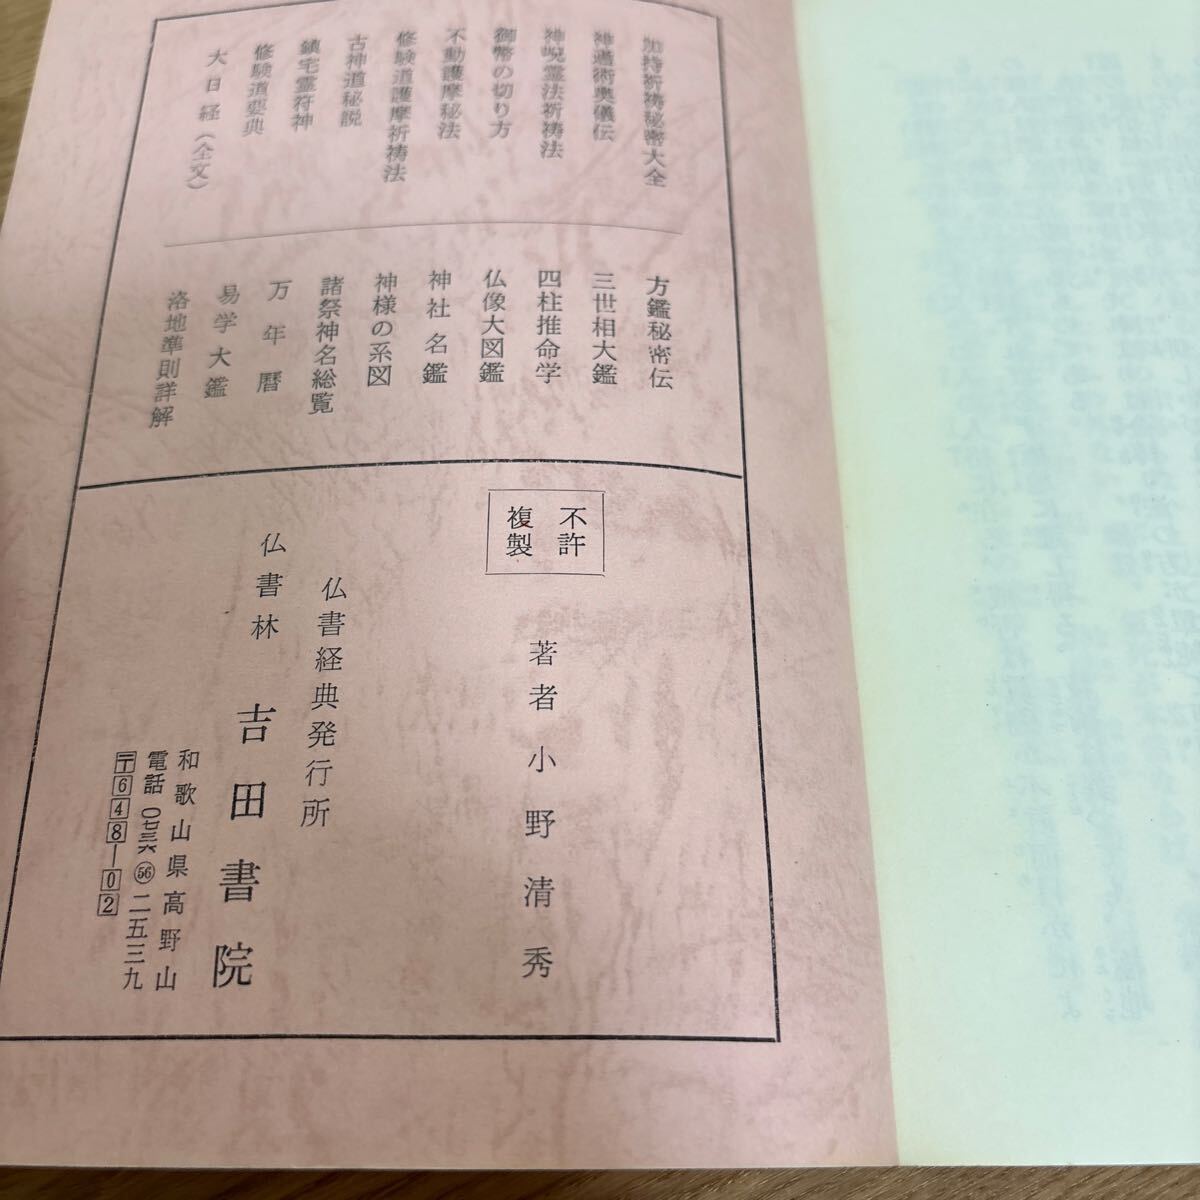 加持祈祷秘密大全
神遁術奥儀伝
神呪霊法祈祷法
御幣の切り方
不動護摩秘法
修験道護摩祈祷法
古神道秘説
鎮宅霊符神
修験道要典
大日経(全文)
方鑑秘密伝
三世相大鑑
四柱推命学
仏像大図鑑
神社名鑑
神様の系図
諸祭神名総覧
万年暦
易学大鑑
洛地準則詳解
不許
複製
著者 小野清秀
仏書経典発行所
仏書林 吉田書院
和歌山県高野山
電話 〇七三六 56 二五三九
〒648-02